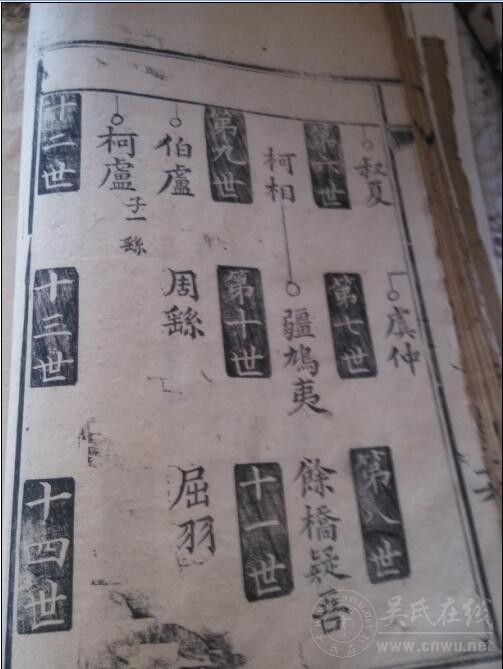 叔夏
虞仲
第六世
第七世
第八世
柯相
疆鳩夷
餘橋疑吾
第九世
第十世
十一世
伯盧
周繇
屈羽
柯盧
子一繇
十二世
十三世
十四世
吴氏在线
www.cnwu.net